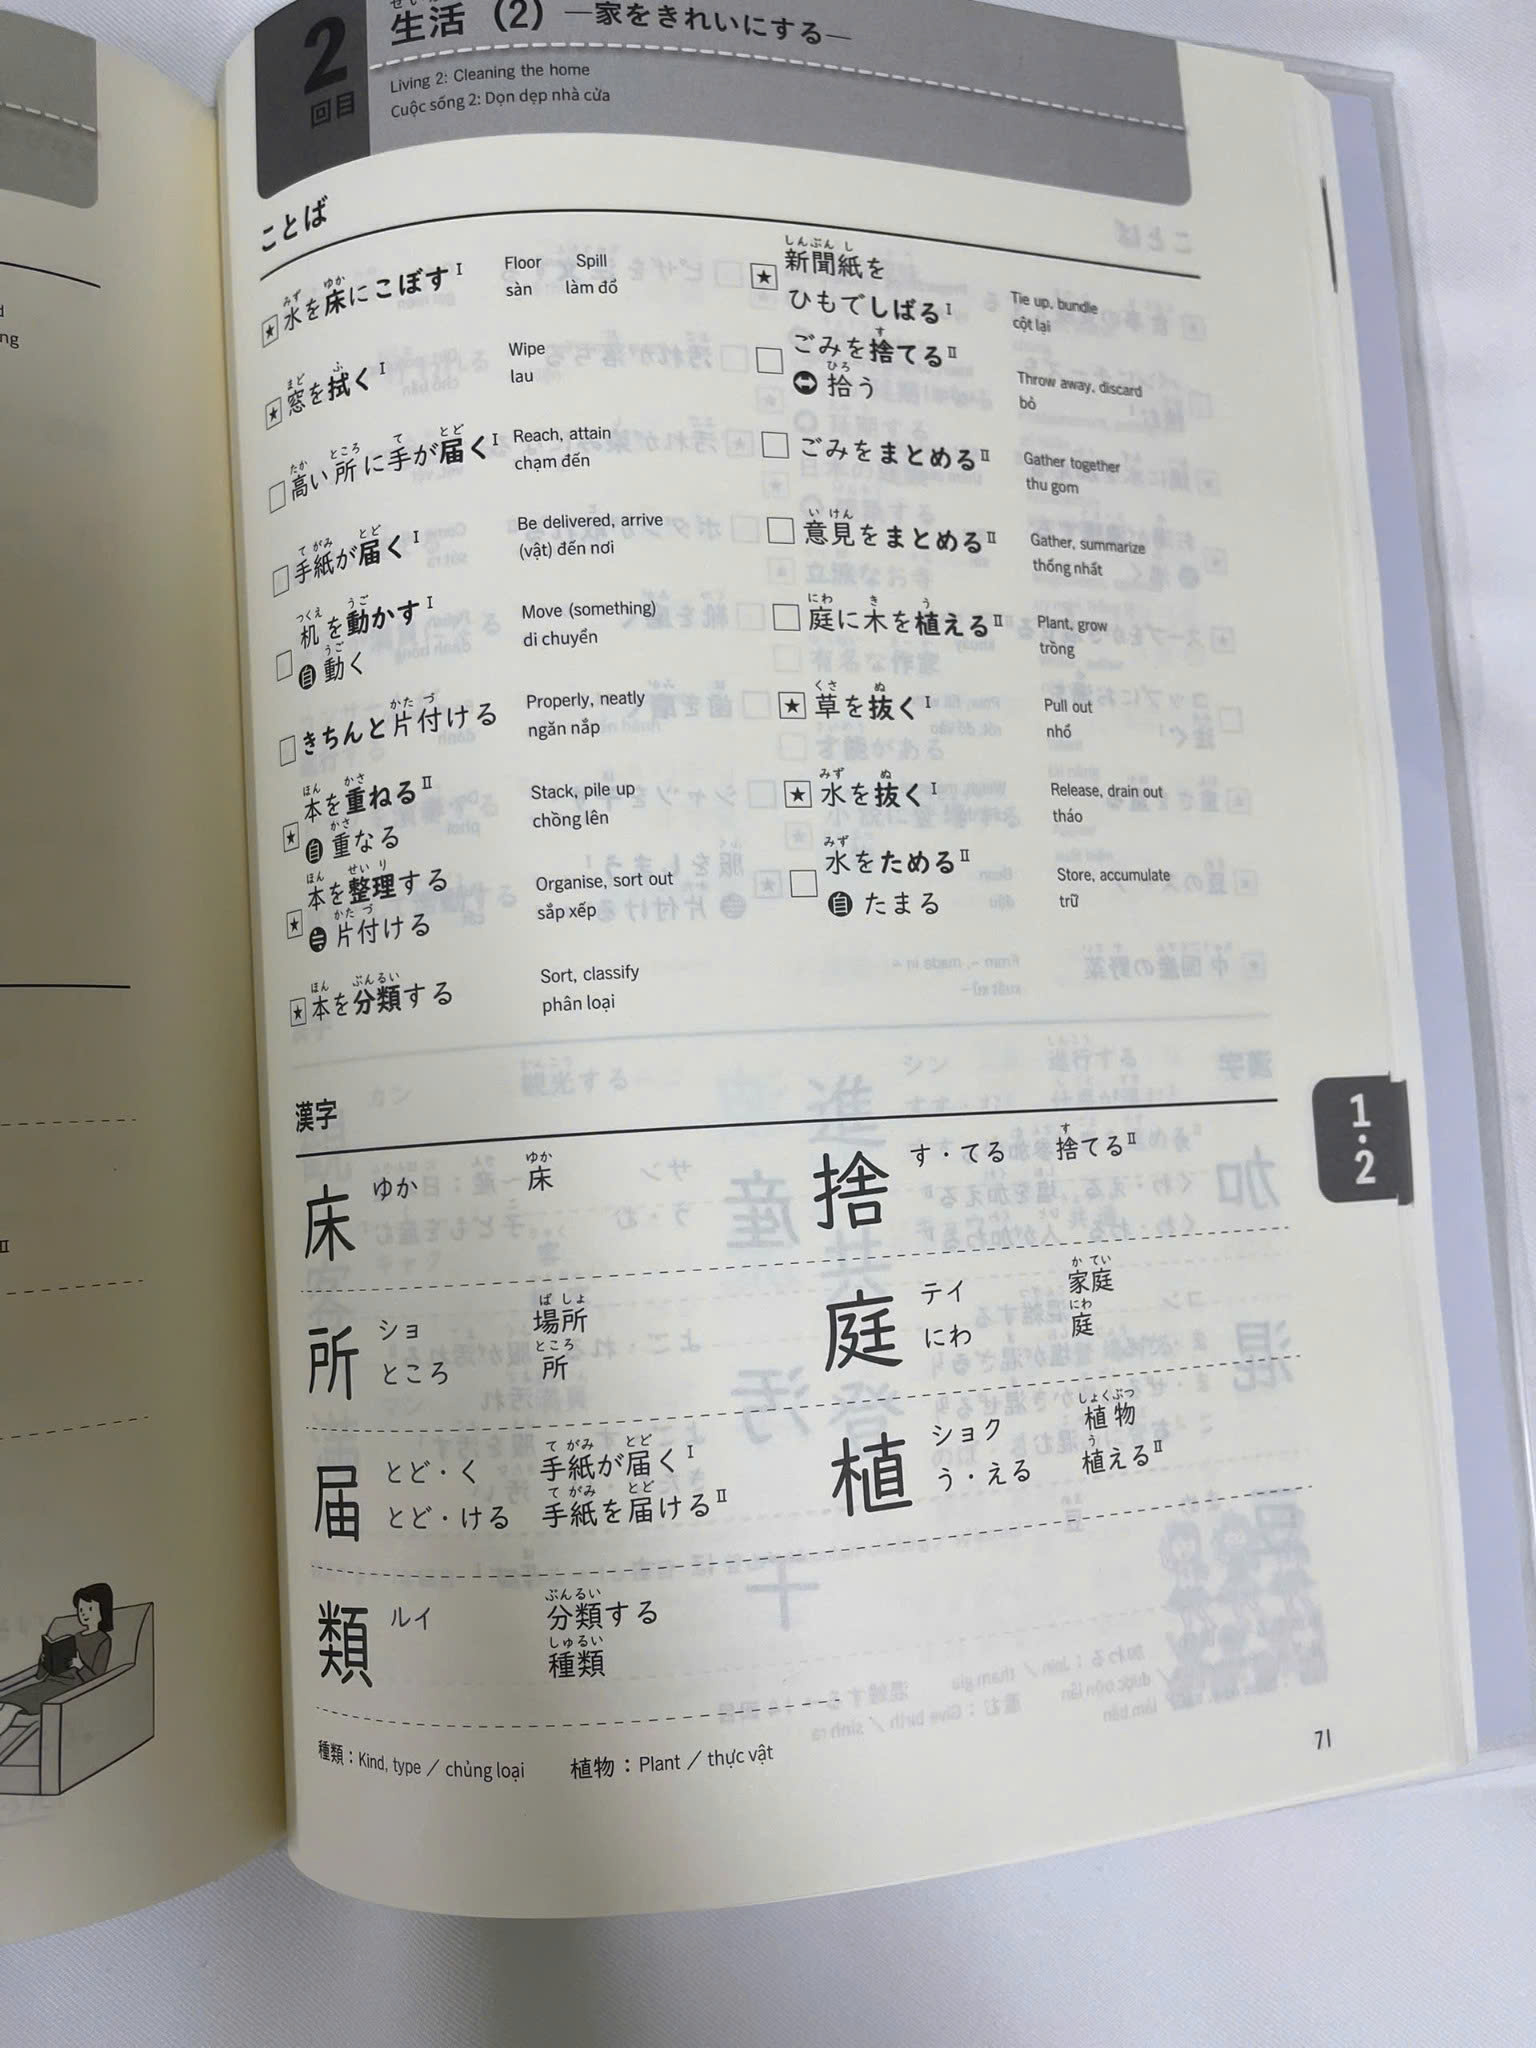 2
回目
生活（2）―家をきれいにする―
Living 2: Cleaning the home
Cuộc sống 2: Dọn dẹp nhà cửa
ことば
みず ゆか
水を床にこぼすI
Floor Spill
sàn làm đổ
まど ふ
窓を拭くI
Wipe
lau
たか ところ て とど
高い所に手が届くI
Reach, attain
chạm đến
て がみ とど
手紙が届くI
Be delivered, arrive
(vật) đến nơi
つくえ うご
机を動かすI
うご
自 動く
Move (something)
di chuyển
かた づ
きちんと片付ける
Properly, neatly
ngăn nắp
ほん かさ
本を重ねるII
かさ
自 重なる
Stack, pile up
chồng lên
ほん せい り
本を整理する
かた づ
片付ける
Organise, sort out
sắp xếp
ほん ぶんるい
本を分類する
Sort, classify
phân loại
しんぶん し
新聞紙を
ひもでしばるI
Tie up, bundle
cột lại
す
ごみを捨てるII
ひろ
拾う
Throw away, discard
bỏ
ごみをまとめるII
Gather together
thu gom
い けん
意見をまとめるII
Gather, summarize
thống nhất
にわ き う
庭に木を植えるII
Plant, grow
trồng
くさ ぬ
草を抜くI
Pull out
nhổ
みず ぬ
水を抜くI
Release, drain out
tháo
みず
水をためるII
自 たまる
Store, accumulate
trữ
漢字
ゆか
床 ゆか 床
ば しょ
所 ショ 場所
ところ
ところ 所
て がみ とど
届 とど・く 手紙が届くI
て がみ とど
とど・ける 手紙を届けるII
ぶんるい
類 ルイ 分類する
しゅるい
種類
す
捨 す・てる 捨てるII
か てい
庭 テイ 家庭
にわ
にわ 庭
しょくぶつ
植 ショク 植物
う
う・える 植えるII
種類：Kind, type ／ chủng loại 植物：Plant ／ thực vật
71
1・2